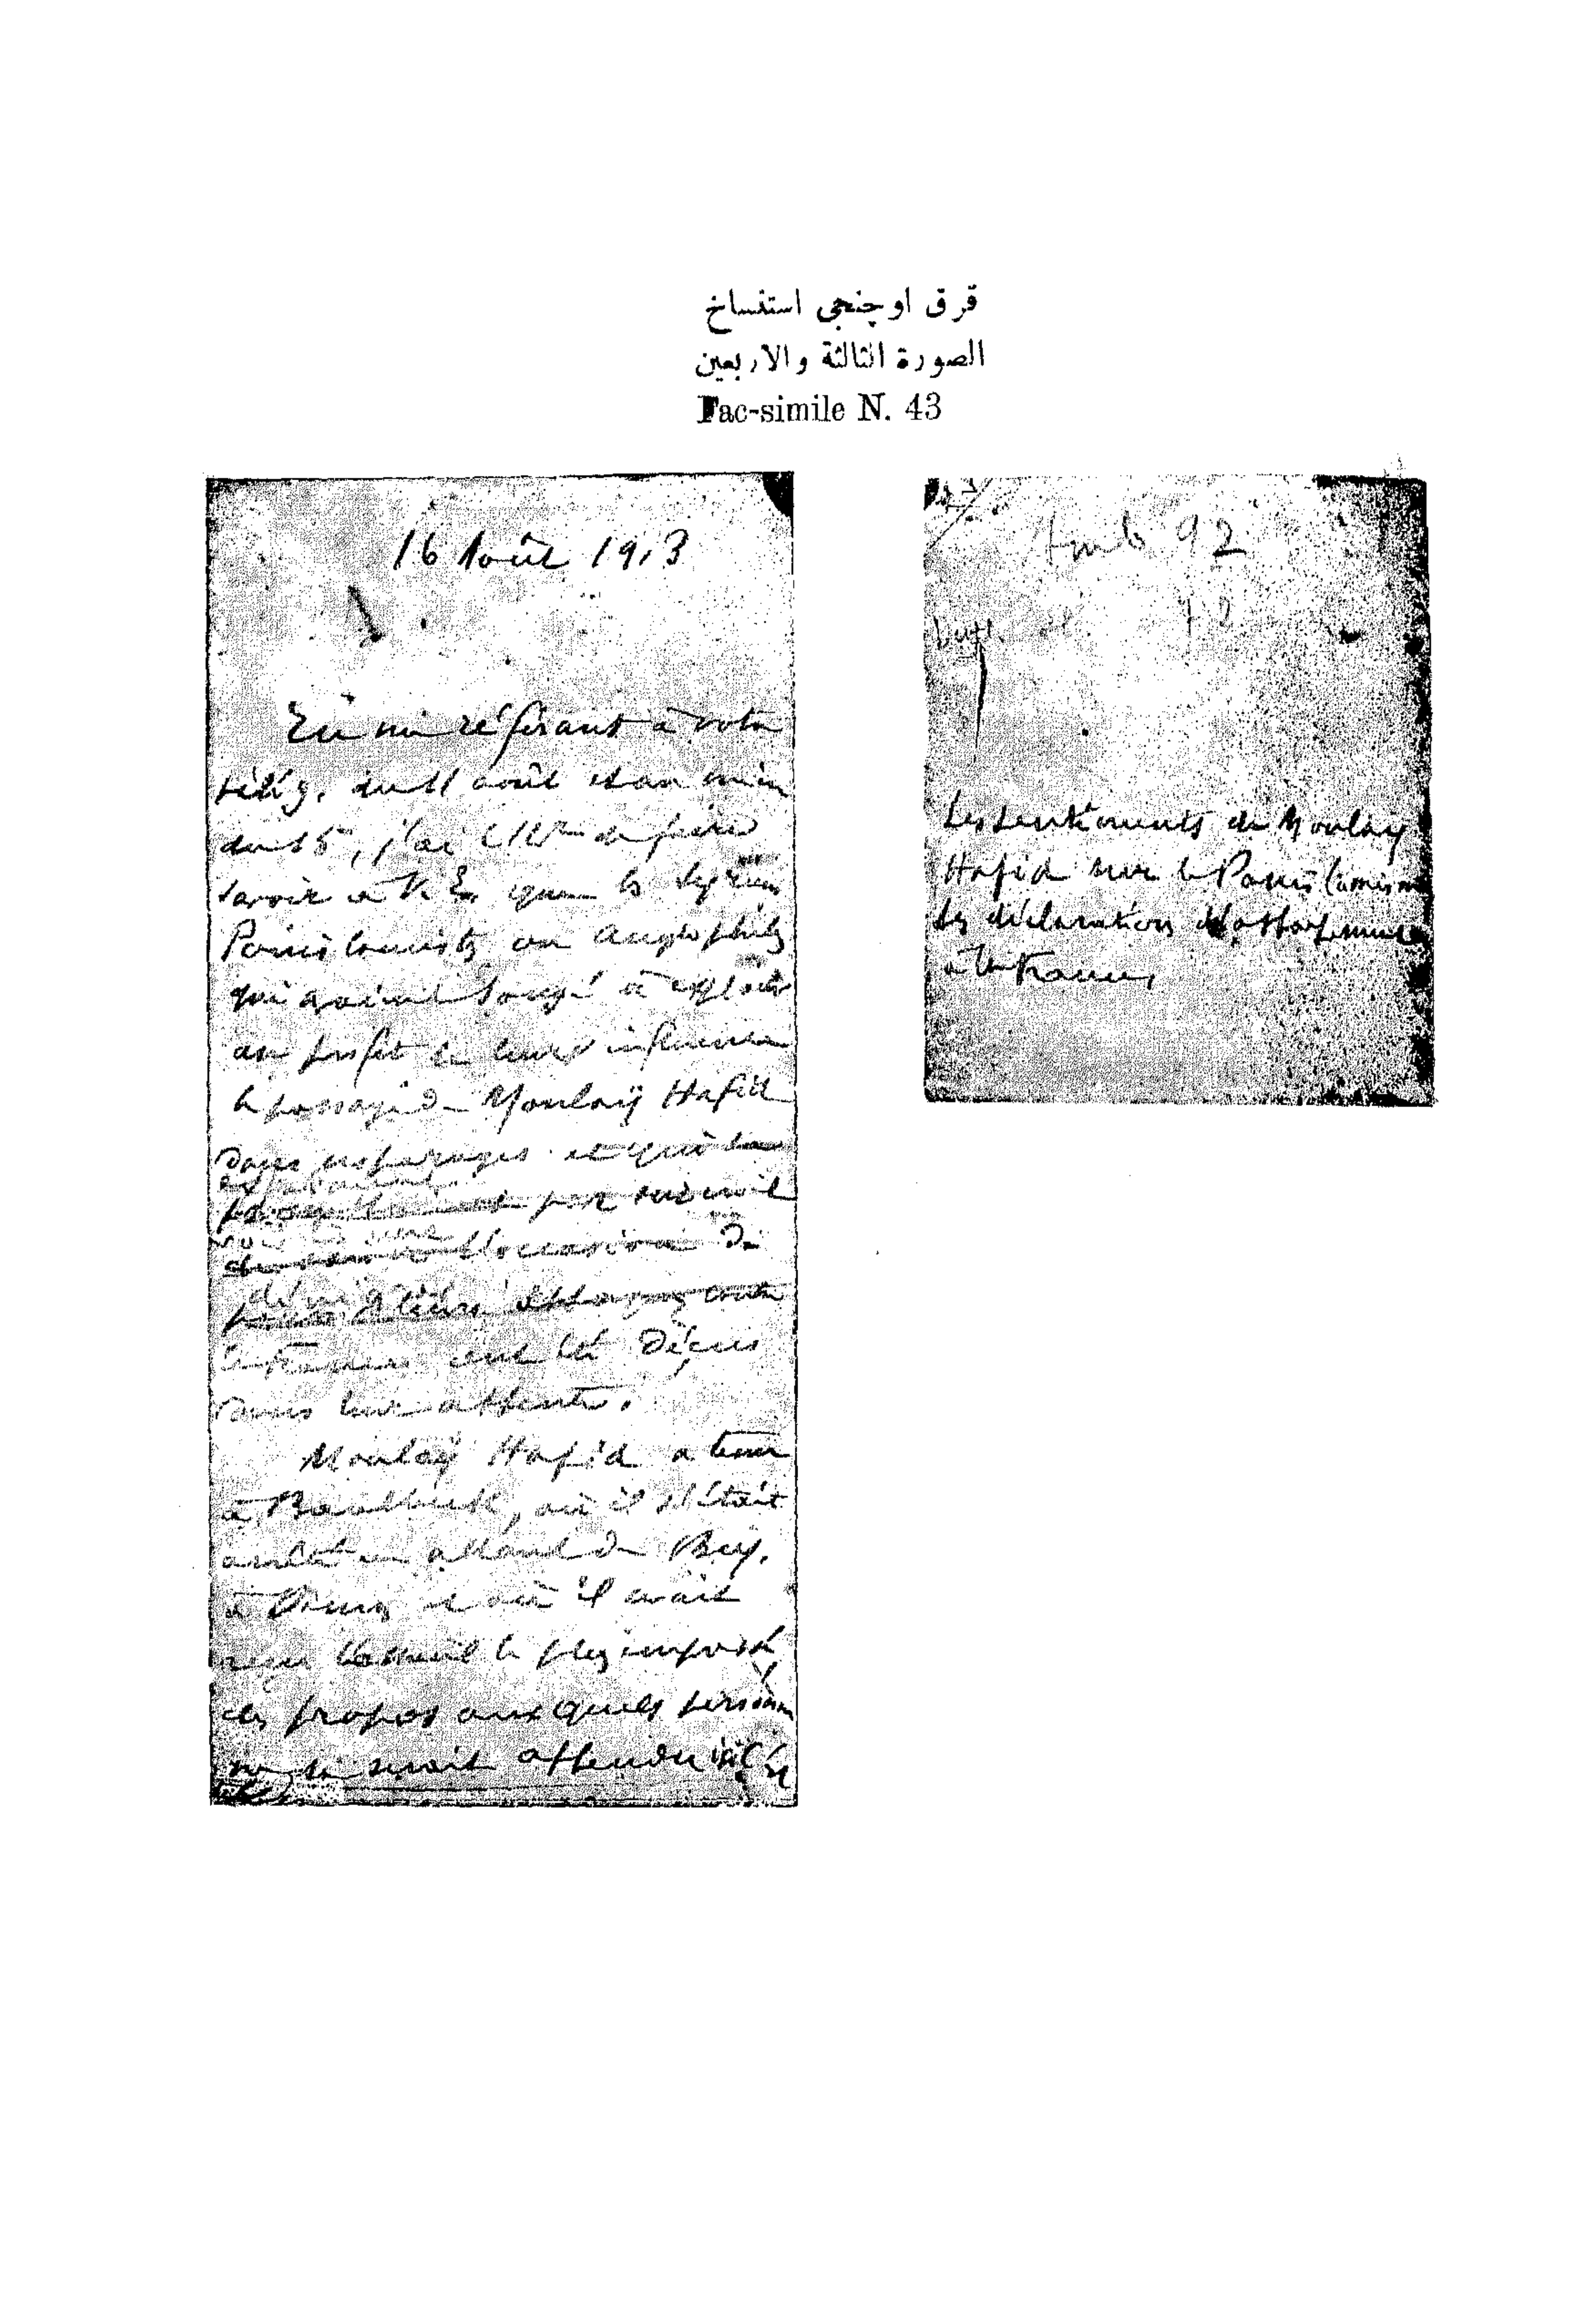 قرق اوچنجی استنساخ
الصورة الثالثة والاربعین
Fac-simile N. 43
16 Août 1913
En me référant à votre
télég. du 11 août et au mien
du 15, j'ai l'hr de faire
savoir à V. E. que les syriens
Panislamistes ou anglophiles
qui avaient songé à exploiter
au profit de leur influence
le passage de Moulaÿ Hafid
dans ces parages et qui
par
l'occasion de
contre
la France ont été déçus
dans leur attente.
Moulaÿ Hafid a tenu
à Baalbeck, où il s'était
arrêté en allant de Bey.
à Damas et où il avait
reçu l'accueil le plus
des propos auxquels personne
ne se serait attendu
Amb 92
Les sentiments de Moulay
Hafid sur le Panislamisme
Ses déclarations d'attachement
à la France.